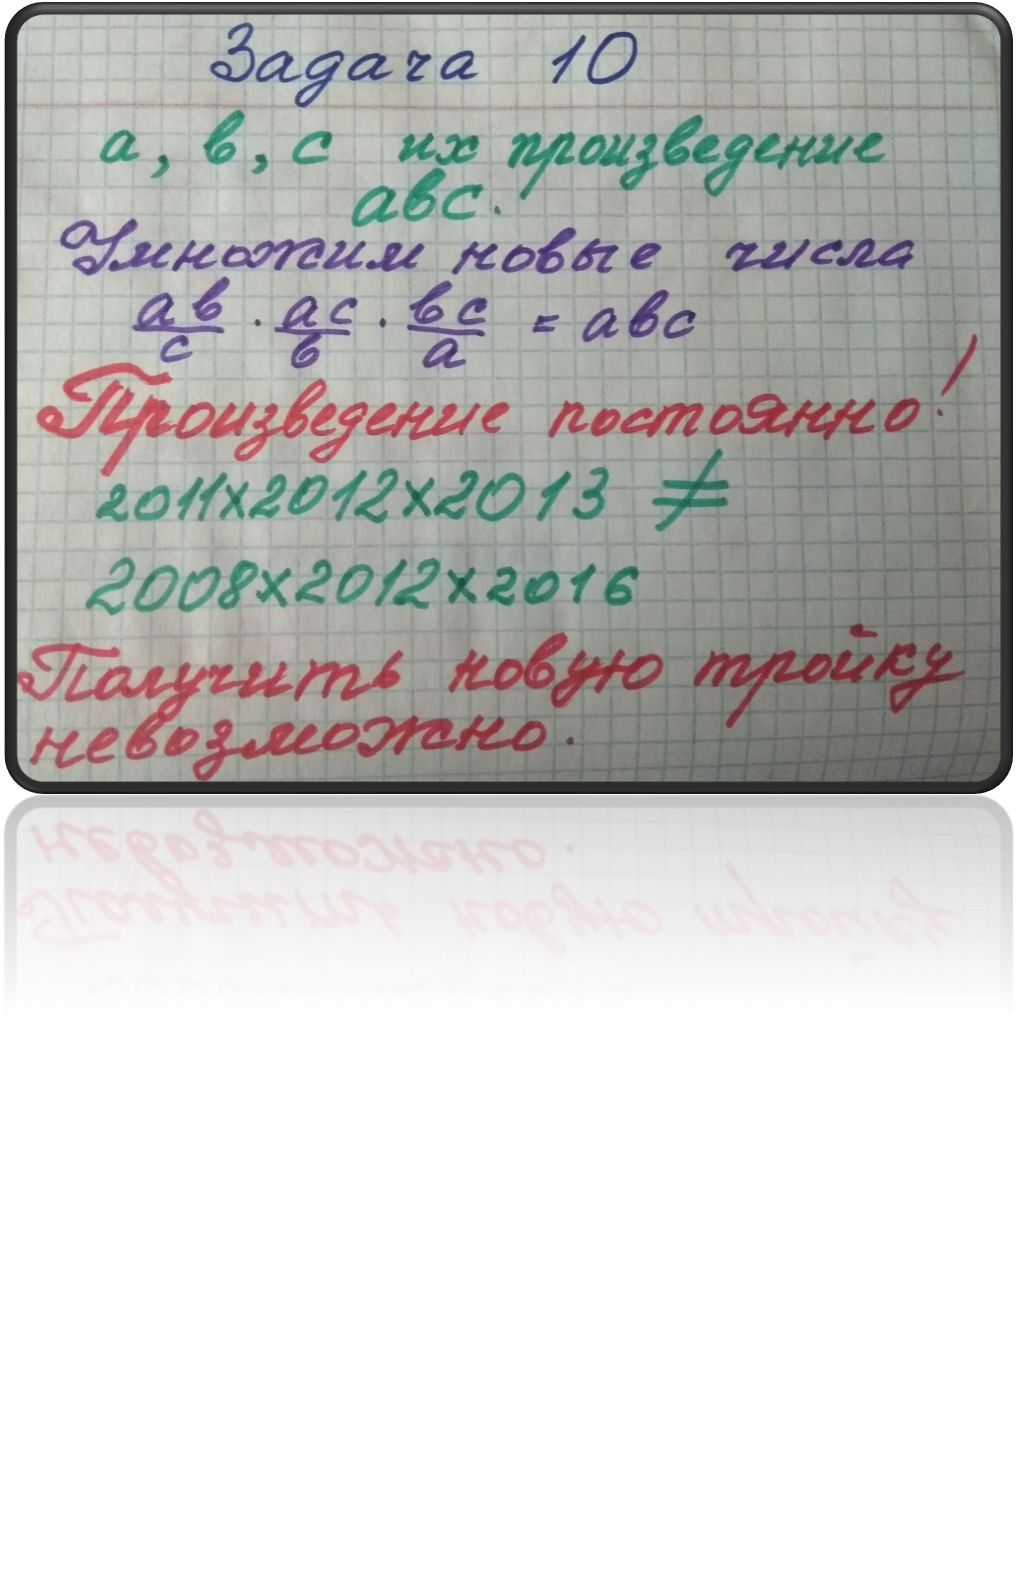 Задача 10
а, в, с их произведение
авс.
Умножим новые числа
ав/с · ас/в · вс/а = авс
Произведение постоянно!
2011х2012х2013 ≠
2008х2012х2016
Получить новую тройку
невозможно.